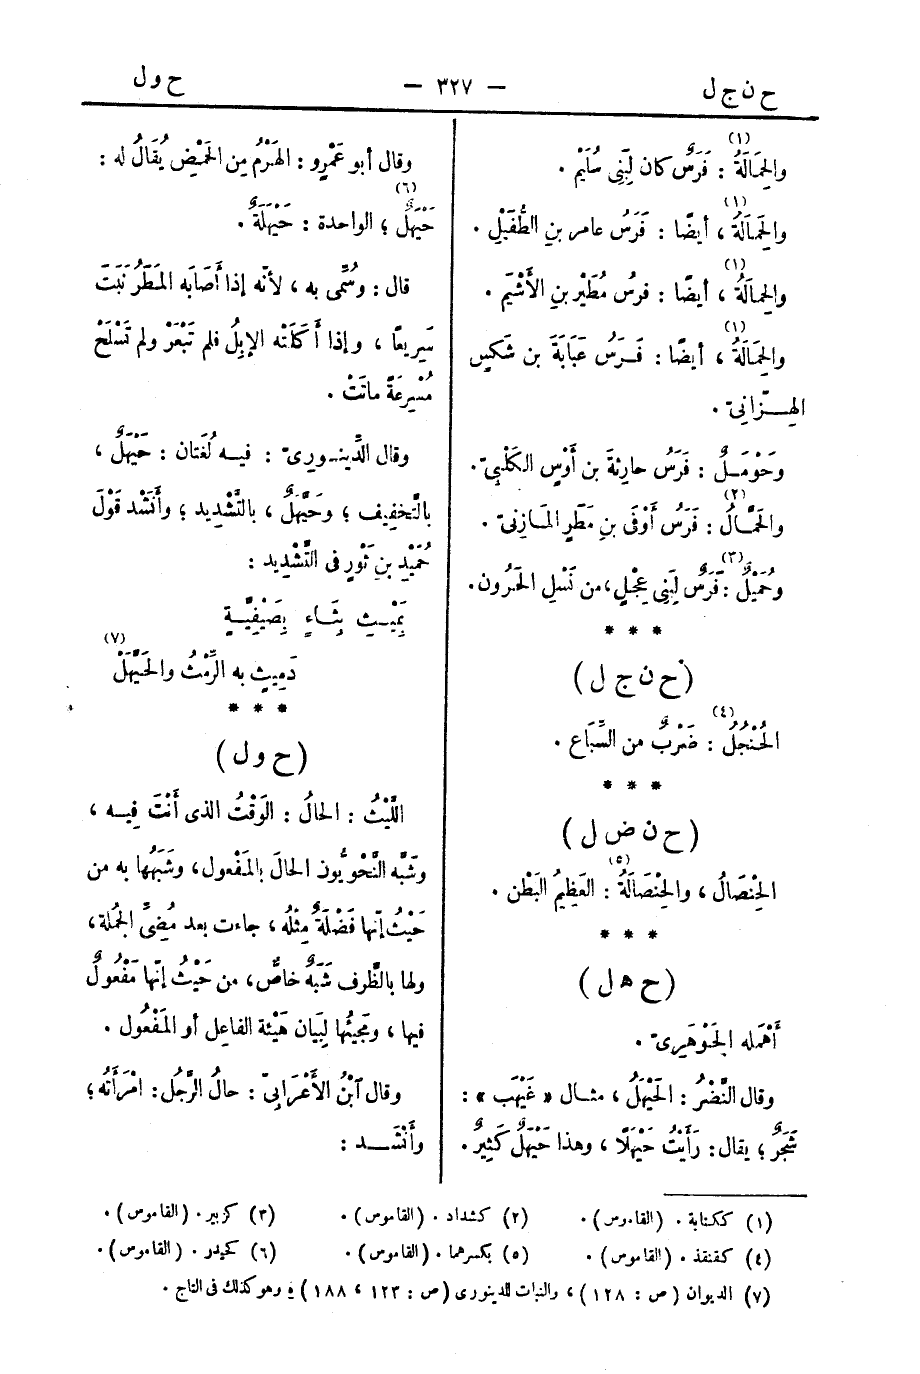 ح ن ج ل
— ٣٢٧ —
ح و ل
والحِمَالَةُ (١) : فَرَسٌ كان لِبَنِى سُلَيْم .
والحِمَالَةُ (١) ، أيضًا : فَرَسُ عامر بنِ الطُّفَيْلِ .
والحِمَالَةُ (١) ، أيضًا : فرسُ مُطَيْر بنِ الأَشْيَم .
والحِمَالَةُ (١) ، أيضًا : فَـرَسُ عَبَايَةَ بن شَكِيس
الهِـزَّانِىّ .
وحَوْمَـلٌ : فَرَسُ حارِثةَ بن أَوْسٍ الكَلْبِىّ .
والحَمَّـالُ (٢) : فَرَسُ أَوْفَى بنِ مَطَرٍ المَـازِنىّ .
وحُمَيْلٌ (٣) : فَرَسٌ لِبَنِى عِجْلٍ ، من نَسْلِ الحَرُون .
* * *
(ح ن ج ل)
الحُنْجُلُ (٤) : ضَرْبٌ من السِّبَاع .
* * *
(ح ن ض ل)
الحِنْصَالُ ، والحِنْصَالَةُ (٥) : العَظِيمُ البَطْن .
* * *
(ح ه ل)
أَهْمَله الجَوْهَرِىّ .
وقال النَّضْرُ : الحَيْهَلُ ، مثـال « غَيْهَب » :
شَجَرٌ ؛ يقال : رَأَيْتُ حَيْهَلًا ، وهذا حَيْهَلٌ كَثِيرٌ .
وقال أبو عَمْرٍو : الهَرْمُ مِن الحَمْضِ يُقَالُ له :
حَيْهَلٌ (٦) ؛ الواحدة : حَيْهَلَةٌ .
قال : وسُمِّى به ، لأنّه إذا أَصَابَه المَطَرُ نَبَتَ
سَرِيعًا ، وإذا أَكَلَتْه الإبِلُ فلم تَبْعَرْ ولم تَسْلَحْ
مُسْرِعَةً ماتَتْ .
وقال الدِّينَـوَرِىّ : فيـه لُغَتان : حَيْهَلٌ ،
بالتَّخفِيف ؛ وحَيَّهَلٌ ، بالتَّشْدِيد ؛ وأَنشَد قَوْلَ
حُمَيْدِ بنِ ثَوْرٍ فى التَّشْدِيد :
بَمِيْـثٍ بِثَـاءٍ بِصَيْفِيَّـةٍ
دَمِيثٍ به الرِّمْثُ والحَيَّهَلْ (٧)
* * *
(ح و ل)
اللَّيْثُ : الحالُ : الوَقْتُ الذى أَنْتَ فِيـه ،
وشَبَّه النَّحْوِيُّون الحالَ بالمَفْعول ، وشَبَهُها به من
حَيْثُ إنّها فَضْلَةٌ مِثْلُه ، جاءت بعد مُضِىِّ الجُمْلة ،
ولها بالظَّرف شَبَهٌ خاصٌّ ، من حَيْثُ إنّها مَفْعُولٌ
فيها ، ومَجِيئُها لِبَيان هَيْئَة الفاعِل أو المَفْعُول .
وقال ابْنُ الأَعْرَابِىّ : حالُ الرَّجُل : امْرَأَتُه ؛
وأَنْشَـد :
(١) ككتابة . (القاموس) . (٢) كشداد . (القاموس) . (٣) كزبير . (القاموس) .
(٤) كقنفذ . (القاموس) . (٥) بكسرهما . (القاموس) . (٦) كحيدر . (القاموس) .
(٧) الديوان (ص : ١٢٨) ، والنبات للدينورى (ص : ١٢٣ ، ١٨٨) ؛ وهو كذلك فى التاج .